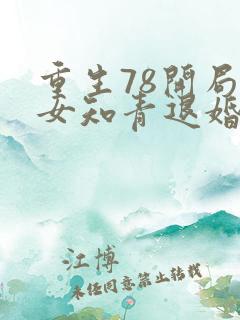 重生78开局
女知青退婚
江博
未经同意禁止转载